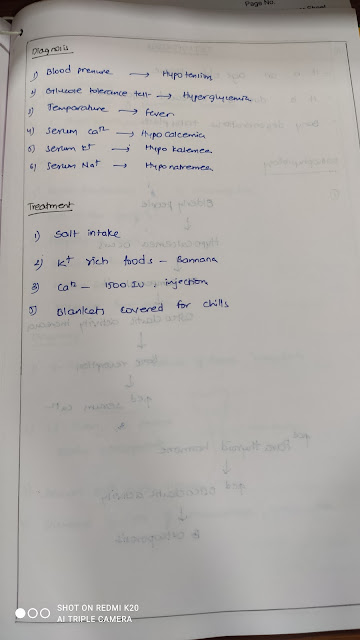 Page No.
Diagnosis
1) Blood pressure → Hypotension
2) Glucose tolerance test → Hyperglycemia
3) Temperature → fever
4) Serum Ca+2 → Hypo calcemia
5) Serum K+ → Hypo kalemea
6) Serum Na+ → Hyponatremea
Treatment
1) Salt intake
2) K+ rich foods - Bannana
3) Ca+2 - 1500 IU, injection
5) Blankets covered for chills
SHOT ON REDMI K20
AI TRIPLE CAMERA